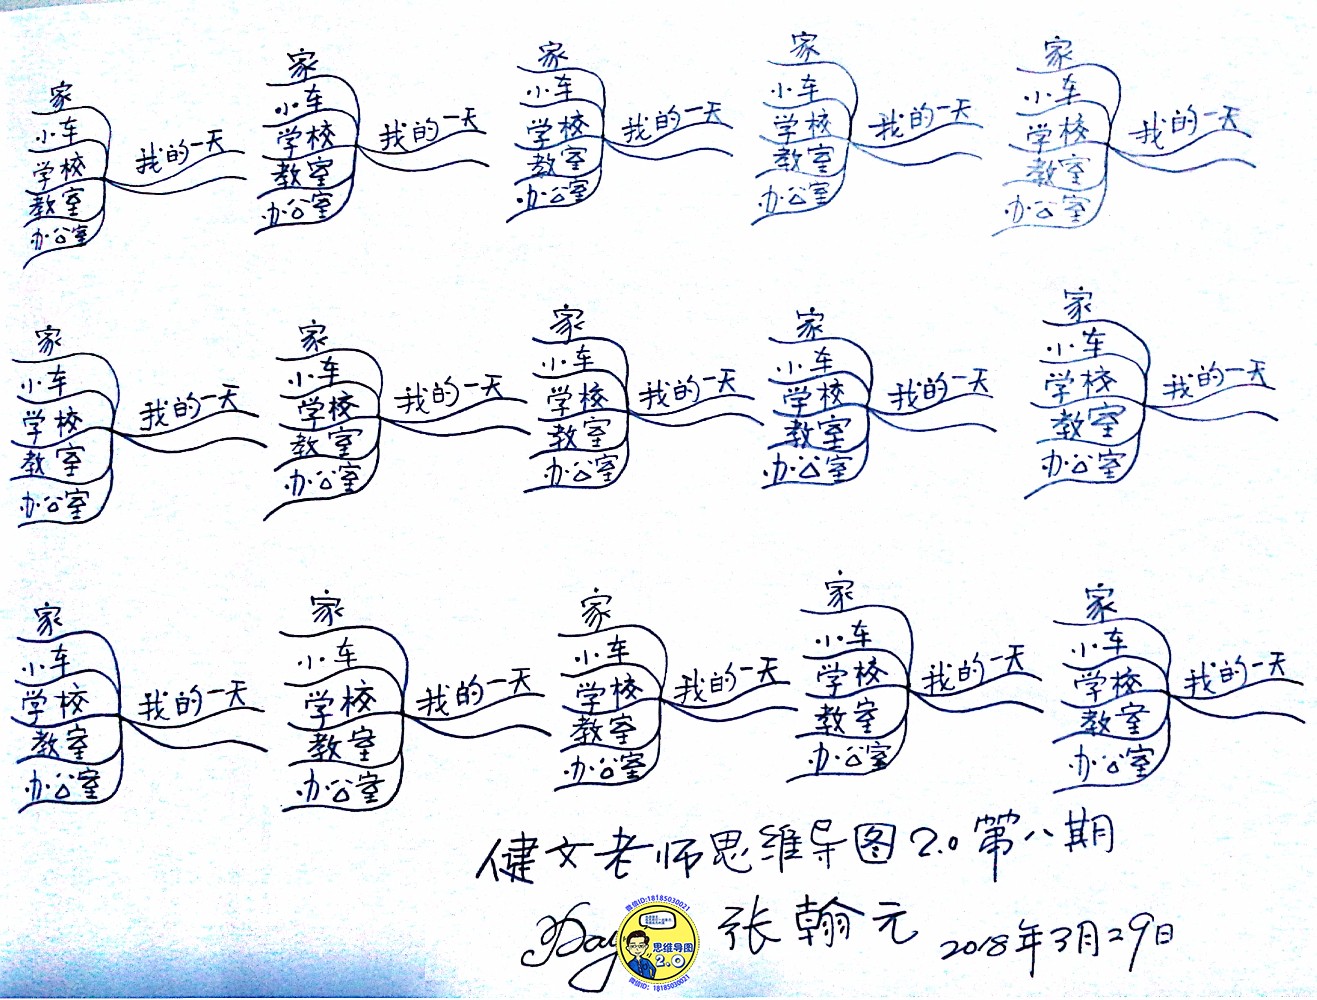 家
小车
学校
教室
办公室
我的一天
家
小车
学校
教室
办公室
我的一天
家
小车
学校
教室
办公室
我的一天
家
小车
学校
教室
办公室
我的一天
家
小车
学校
教室
办公室
我的一天
家
小车
学校
教室
办公室
我的一天
家
小车
学校
教室
办公室
我的一天
家
小车
学校
教室
办公室
我的一天
家
小车
学校
教室
办公室
我的一天
家
小车
学校
教室
办公室
我的一天
家
小车
学校
教室
办公室
我的一天
家
小车
学校
教室
办公室
我的一天
家
小车
学校
教室
办公室
我的一天
家
小车
学校
教室
办公室
我的一天
家
小车
学校
教室
办公室
我的一天
健文老师思维导图2.0第八期
Day
微信ID:18185030021
思维导图
2.0
微信ID:18185030021
张翰元
2018年3月29日